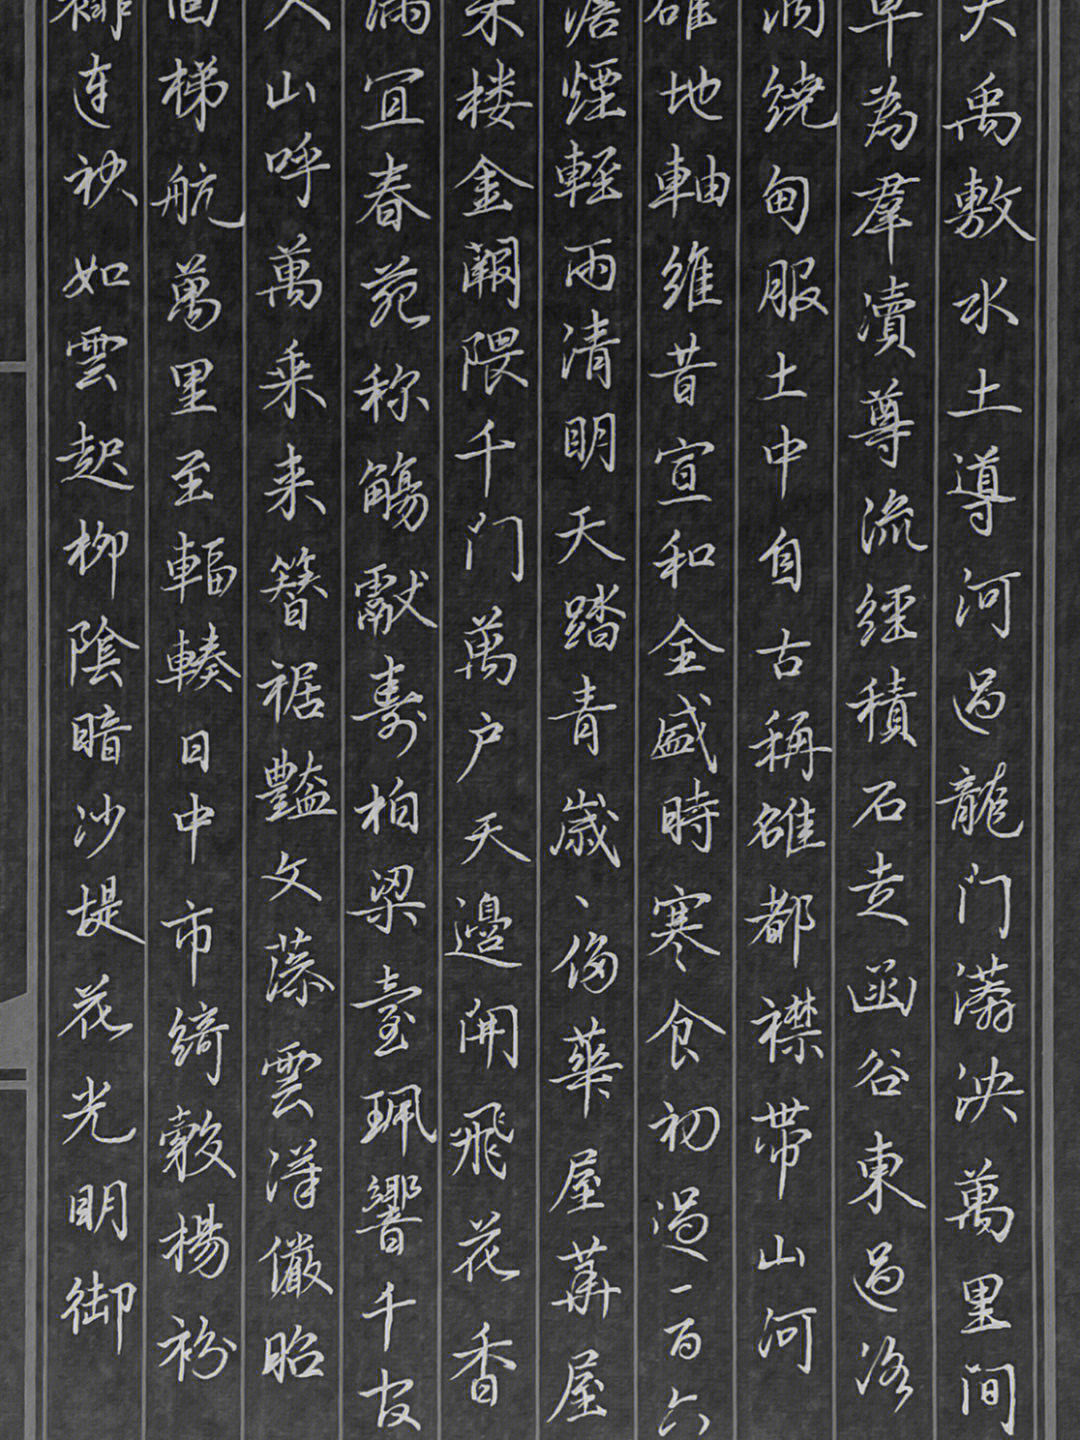 大禹敷水土導河過龍门漭泱萬里间
早為羣瀆尊流經積石走函谷東過洛
澗繞甸服土中自古稱雄都襟带山河
雄地軸維昔宣和全盛時寒食初過一百六
澹煙輕雨清明天踏青歲〻侈華屋華屋
朱楼金闕隈千门萬户天邊開飛花香
滿宜春苑称觴獻寿柏梁臺珮響千官
人山呼萬乘来簪裾豔文藻雲漢儼昭
回梯航萬里至輻輳日中市綺縠楊袗
連袂如雲起柳陰暗沙堤花光明御